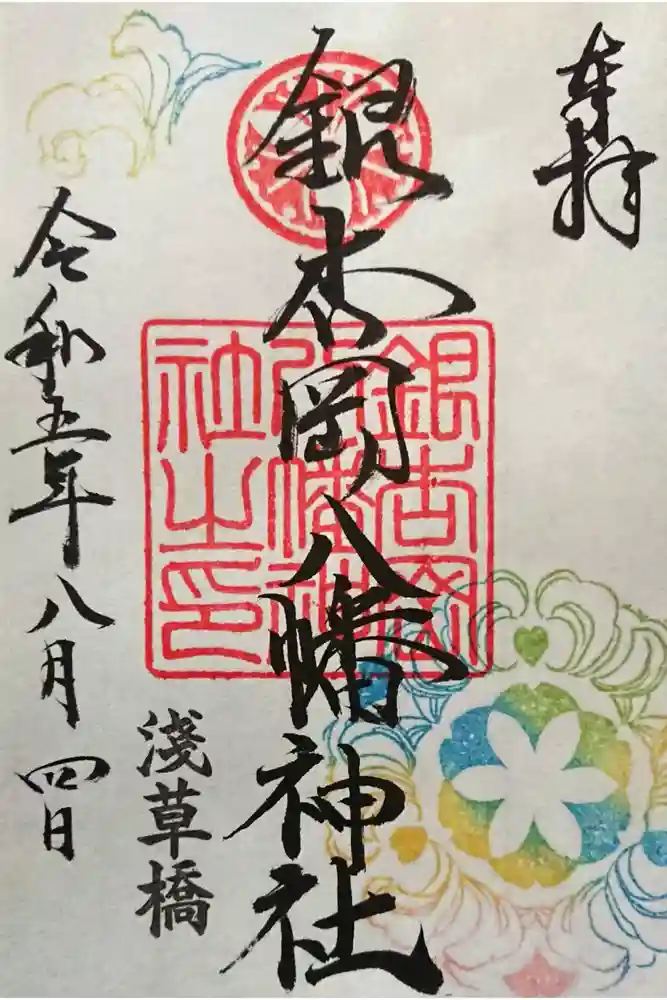 奉拝
銀杏岡八幡神社
銀杏岡
八幡神
社之印
淺草橋
令和五年八月四日